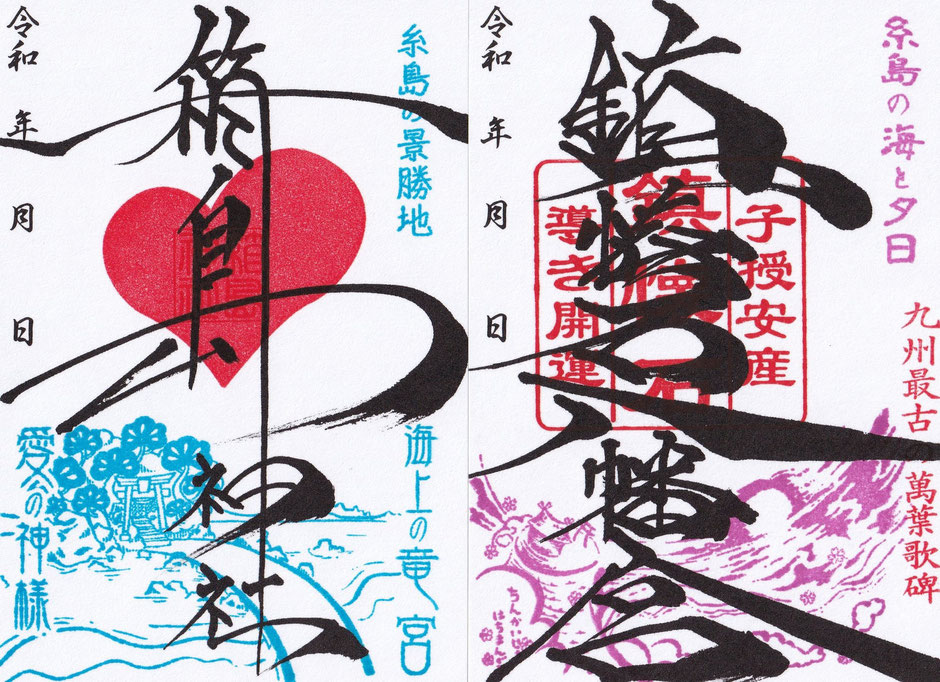 糸島の景勝地
箱島神社
令和 年 月 日
海上の竜宮
愛の神様
糸島の海と夕日
九州最古の萬葉歌碑
子授安産
鎮懐石
導き開運
鎮懐石八幡宮
令和 年 月 日
ちんかいせき
はちまんぐう